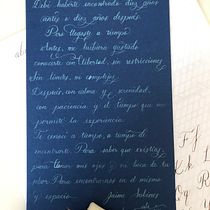 Debí haberte encontrado diez años
antes o diez años después.
Pero llegaste a tiempo
Antes, me hubiera gustado
conocerte con libertad, sin restricciones
Sin límites, ni complejos.
Después, con calma y serenidad,
con paciencia y el tiempo que me
permite la experiencia.
Te conocí a tiempo, a tiempo de
encontrarte Para saber que existías
para tomar mis ojos y mi boca de tu
Para encontrarnos en el mismo
y espacio
Jaime Sabines